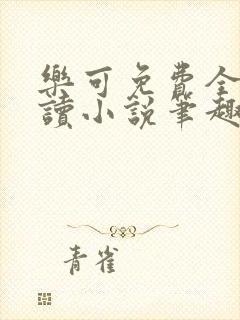 樂可免費全
讀小說筆趣
青雀